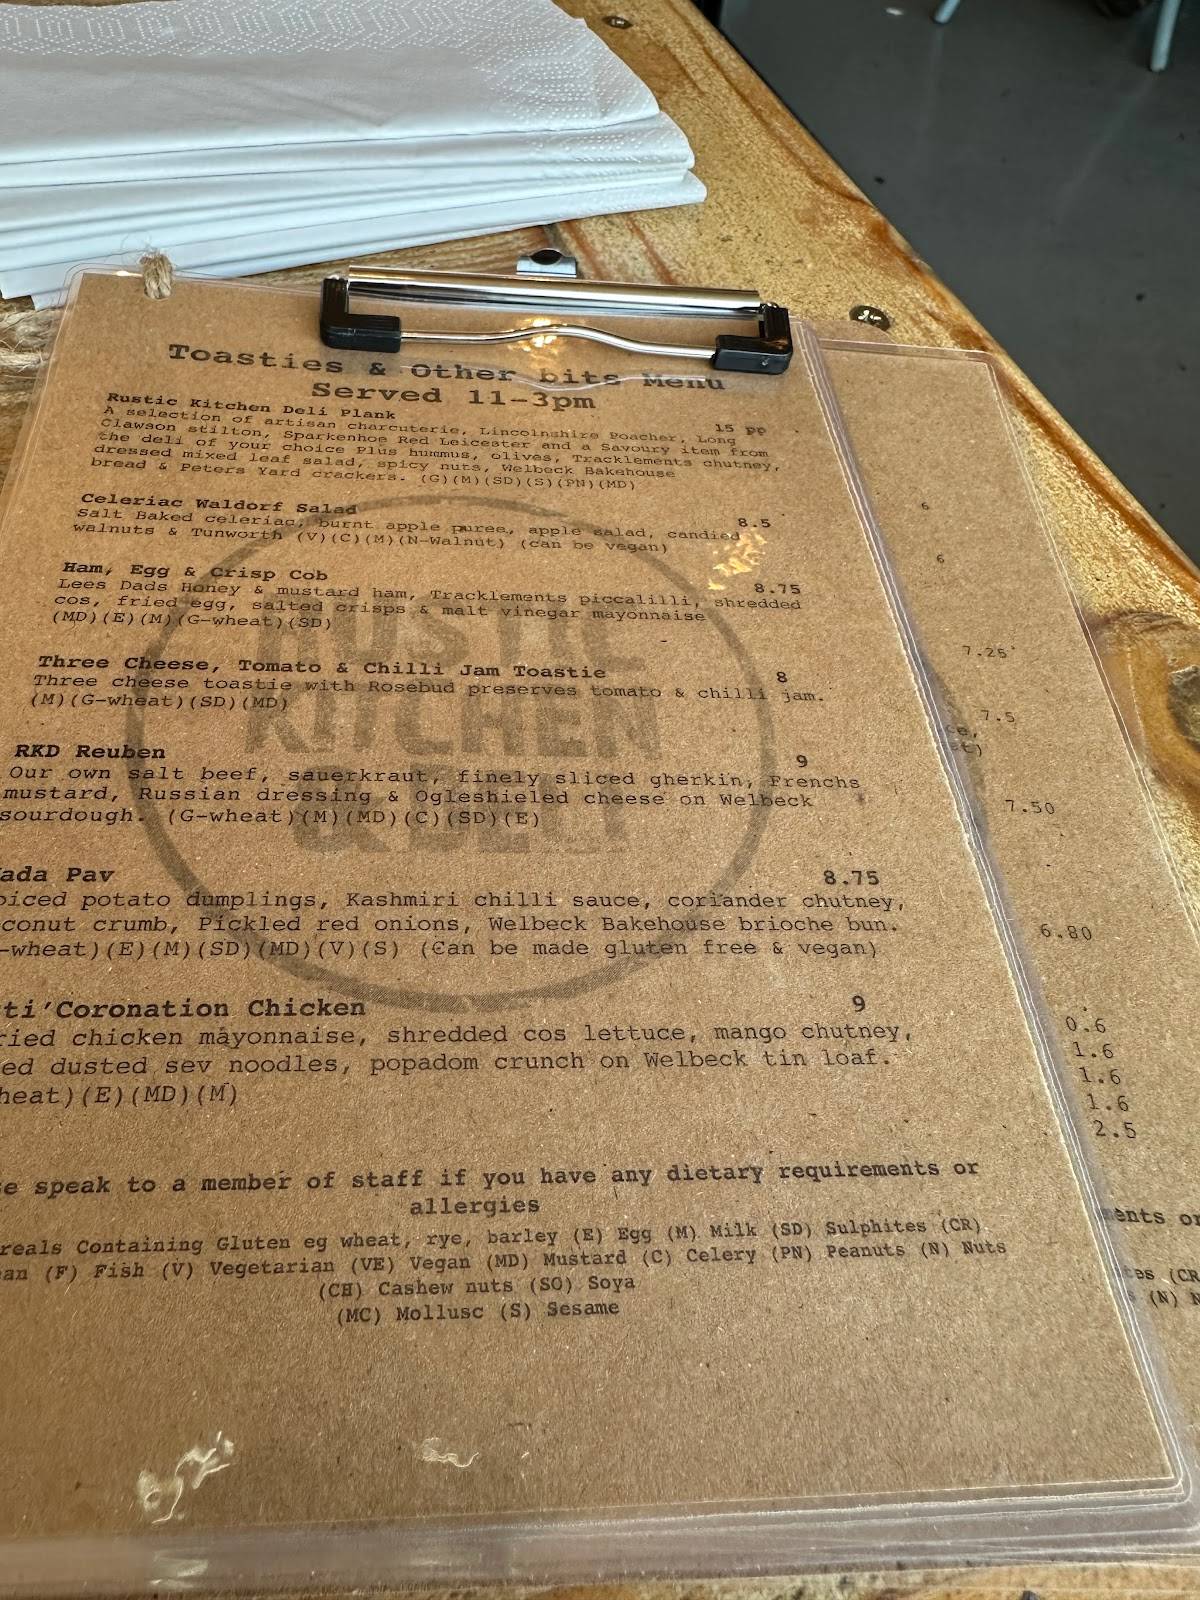 Toasties & Other bits Menu
Served 11-3pm
Rustic Kitchen Deli Plank 15 pp
A selection of artisan charcuterie, Lincolnshire Poacher, Long
Clawson stilton, Sparkenhoe Red Leicester and a Savoury item from
the deli of your choice Plus hummus, olives, Tracklements chutney,
dressed mixed leaf salad, spicy nuts, Welbeck Bakehouse
bread & Peters Yard crackers. (G)(M)(SD)(S)(PN)(MD)
Celeriac Waldorf Salad 8.5
Salt Baked celeriac, burnt apple puree, apple salad, candied
walnuts & Tunworth (V)(C)(M)(N-Walnut) (can be vegan)
Ham, Egg & Crisp Cob 8.75
Lees Dads Honey & mustard ham, Tracklements piccalilli, shredded
cos, fried egg, salted crisps & malt vinegar mayonnaise
(MD)(E)(M)(G-wheat)(SD)
Three Cheese, Tomato & Chilli Jam Toastie 8
Three cheese toastie with Rosebud preserves tomato & chilli jam.
(M)(G-wheat)(SD)(MD)
RKD Reuben 9
Our own salt beef, sauerkraut, finely sliced gherkin, Frenchs
mustard, Russian dressing & Ogleshieled cheese on Welbeck
sourdough. (G-wheat)(M)(MD)(C)(SD)(E)
ada Pav 8.75
piced potato dumplings, Kashmiri chilli sauce, coriander chutney,
conut crumb, Pickled red onions, Welbeck Bakehouse brioche bun.
-wheat)(E)(M)(SD)(MD)(V)(S) (Can be made gluten free & vegan)
ti'Coronation Chicken 9
ried chicken mayonnaise, shredded cos lettuce, mango chutney,
ed dusted sev noodles, popadom crunch on Welbeck tin loaf.
heat)(E)(MD)(M)
se speak to a member of staff if you have any dietary requirements or
allergies
reals Containing Gluten eg wheat, rye, barley (E) Egg (M) Milk (SD) Sulphites (CR)
an (F) Fish (V) Vegetarian (VE) Vegan (MD) Mustard (C) Celery (PN) Peanuts (N) Nuts
(CH) Cashew nuts (SO) Soya
(MC) Mollusc (S) Sesame
RUSTIC
KITCHEN
& DELI
6
6
7.25
7.5
7.50
6.80
0.6
1.6
1.6
1.6
2.5
ments or
tes (CR
(N) N